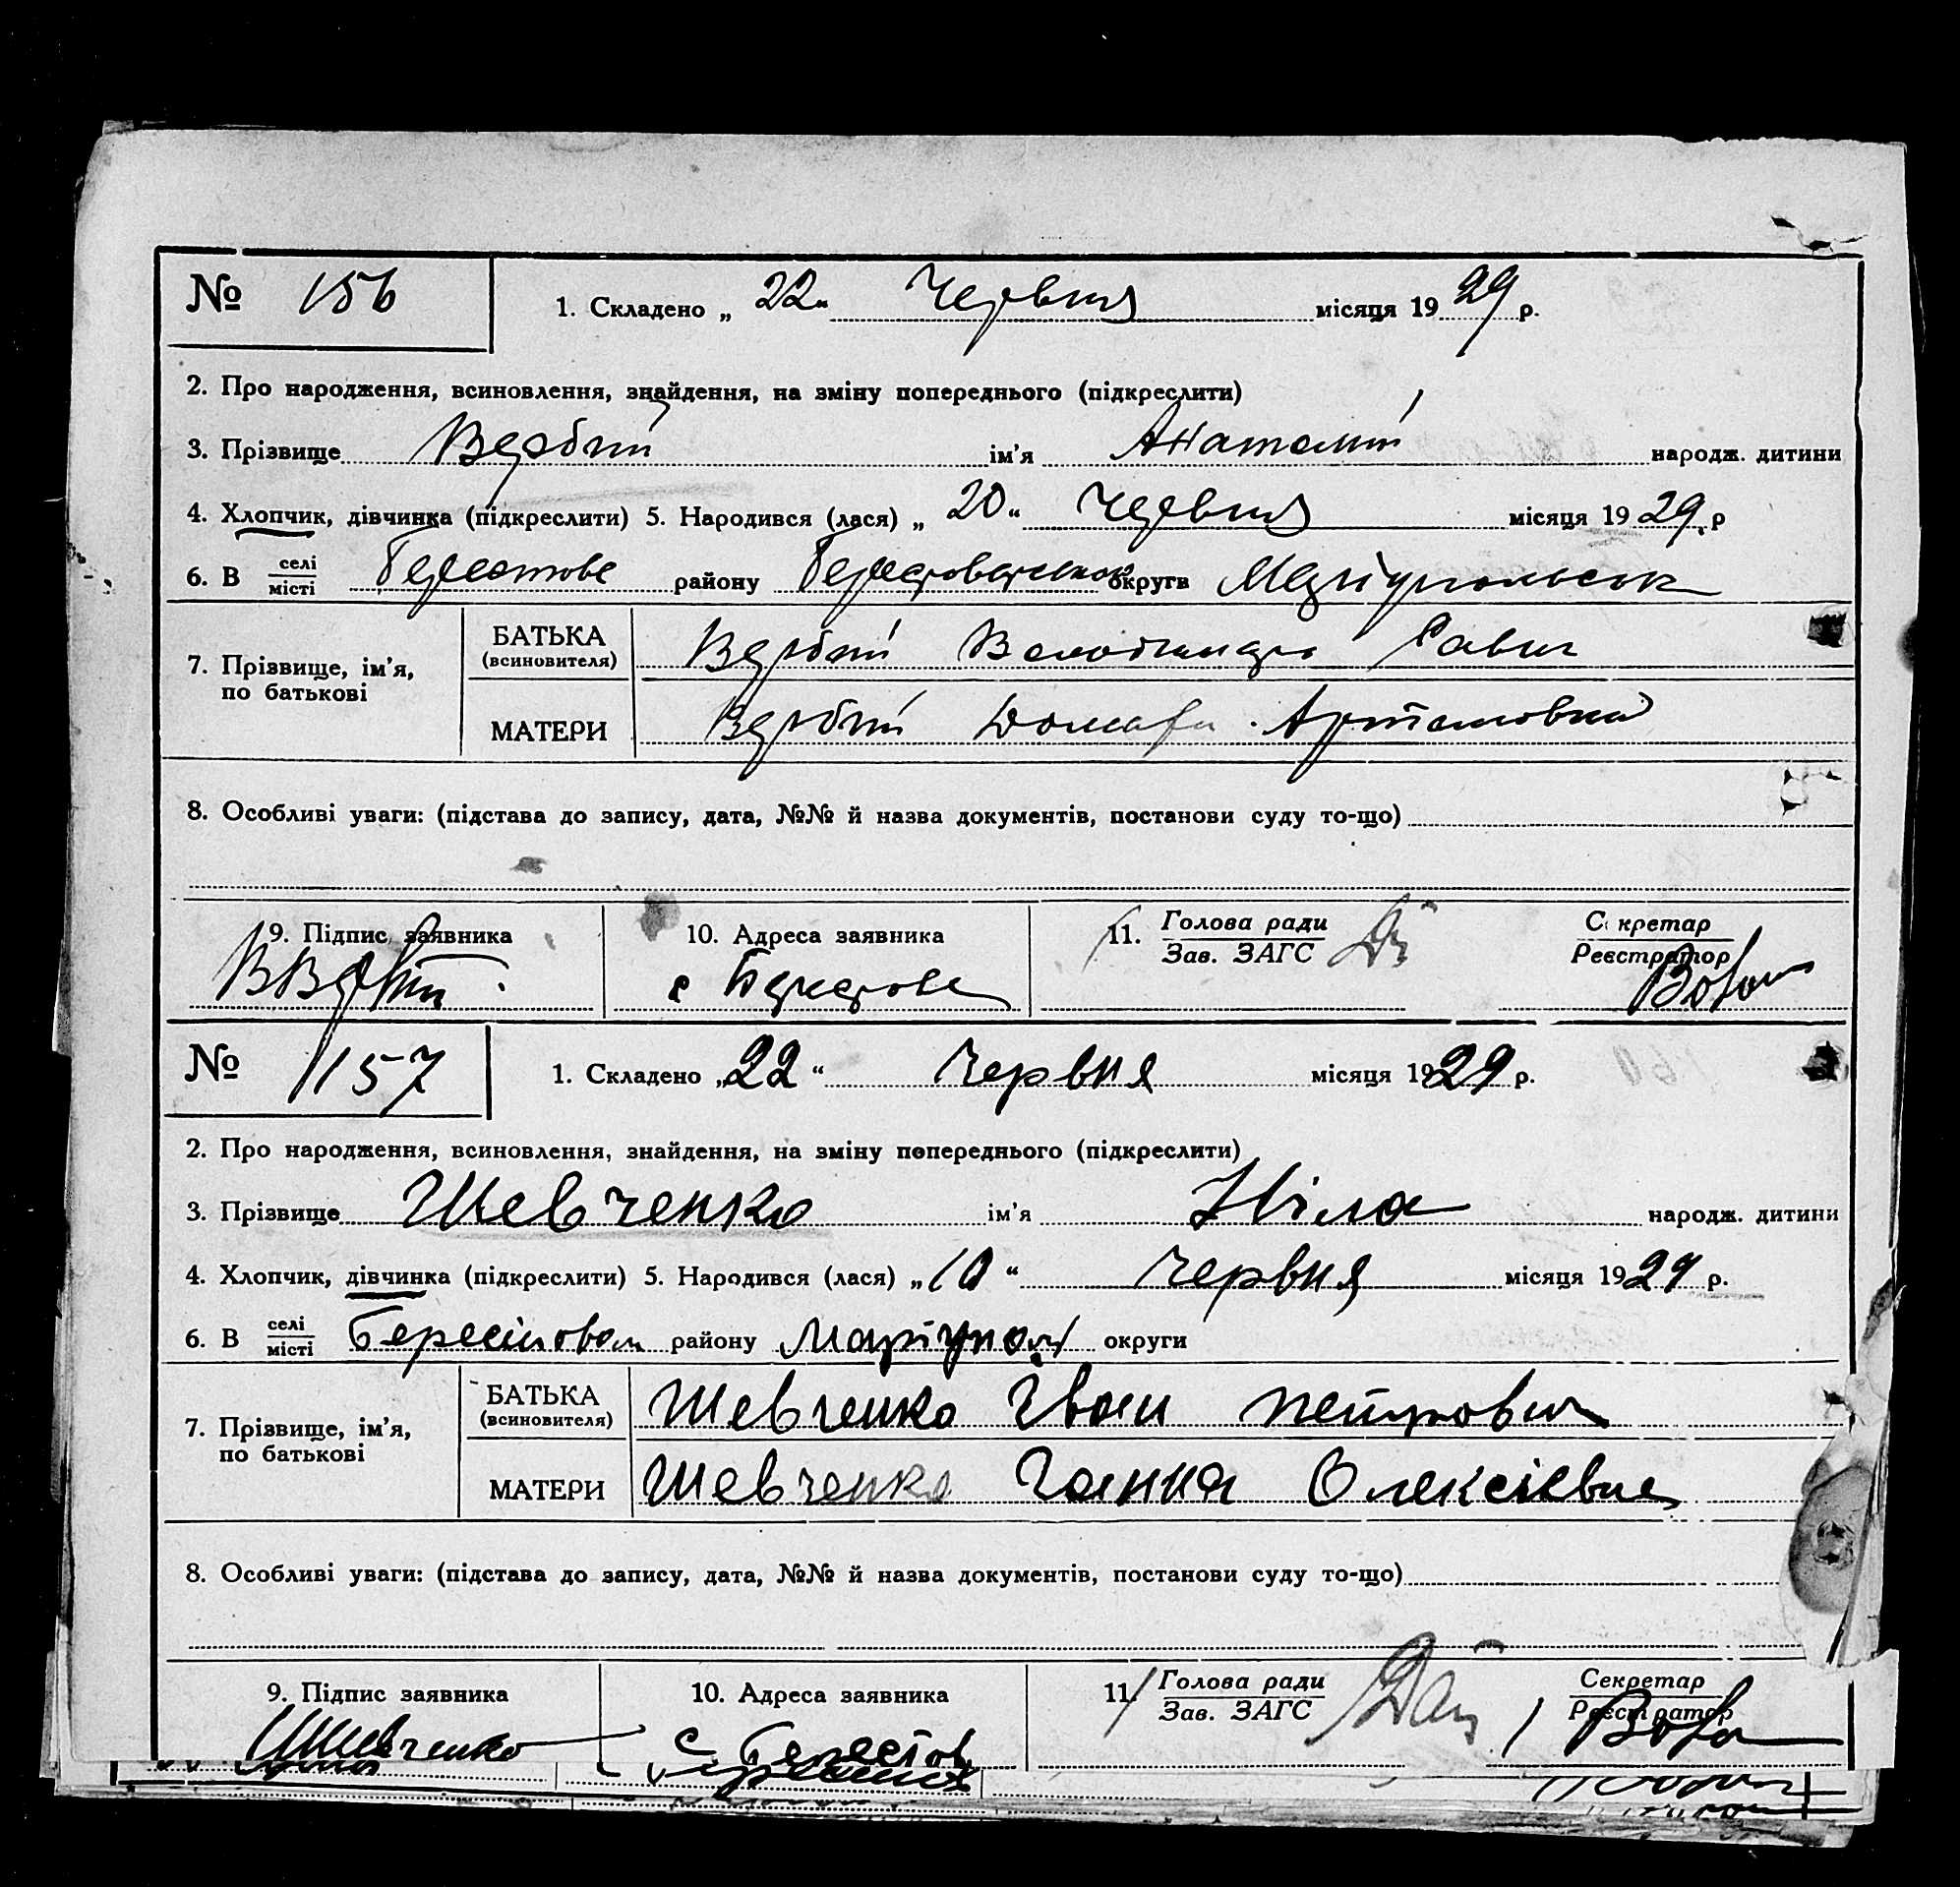 № 156 1. Складено „ 22 “ Червня місяця 1929 р.
2. Про народження, всиновлення, знайдення, на зміну попереднього (підкреслити)
3. Прізвище Вербій ім'я Анатолій народж. дитини
4. Хлопчик, дівчинка (підкреслити) 5. Народився (лася) „ 20 “ Червня місяця 1929 р
6. В селі/місті Берестове району округи Маріупольськ
7. Прізвище, ім'я, по батькові
БАТЬКА (всиновителя) Вербій Савич
МАТЕРИ Вербій Артемовна
8. Особливі уваги: (підстава до запису, дата, №№ й назва документів, постанови суду то-що)
9. Підпис заявника 10. Адреса заявника 11. Голова ради Секретар
Зав. ЗАГС Реєстратор
с Берестове
№ 157 1. Складено „ 22 “ червня місяця 1929 р.
2. Про народження, всиновлення, знайдення, на зміну попереднього (підкреслити)
3. Прізвище Шевченко ім'я Ніла народж. дитини
4. Хлопчик, дівчинка (підкреслити) 5. Народився (лася) „ 10 “ червня місяця 1929 р.
6. В селі/місті району округи
7. Прізвище, ім'я, по батькові
БАТЬКА (всиновителя) Шевченко Іван Петрович
МАТЕРИ Шевченко Ганна Олексієвна
8. Особливі уваги: (підстава до запису, дата, №№ й назва документів, постанови суду то-що)
9. Підпис заявника 10. Адреса заявника 11. Голова ради Секретар
Зав. ЗАГС Реєстратор
Шевченко с. Берестов